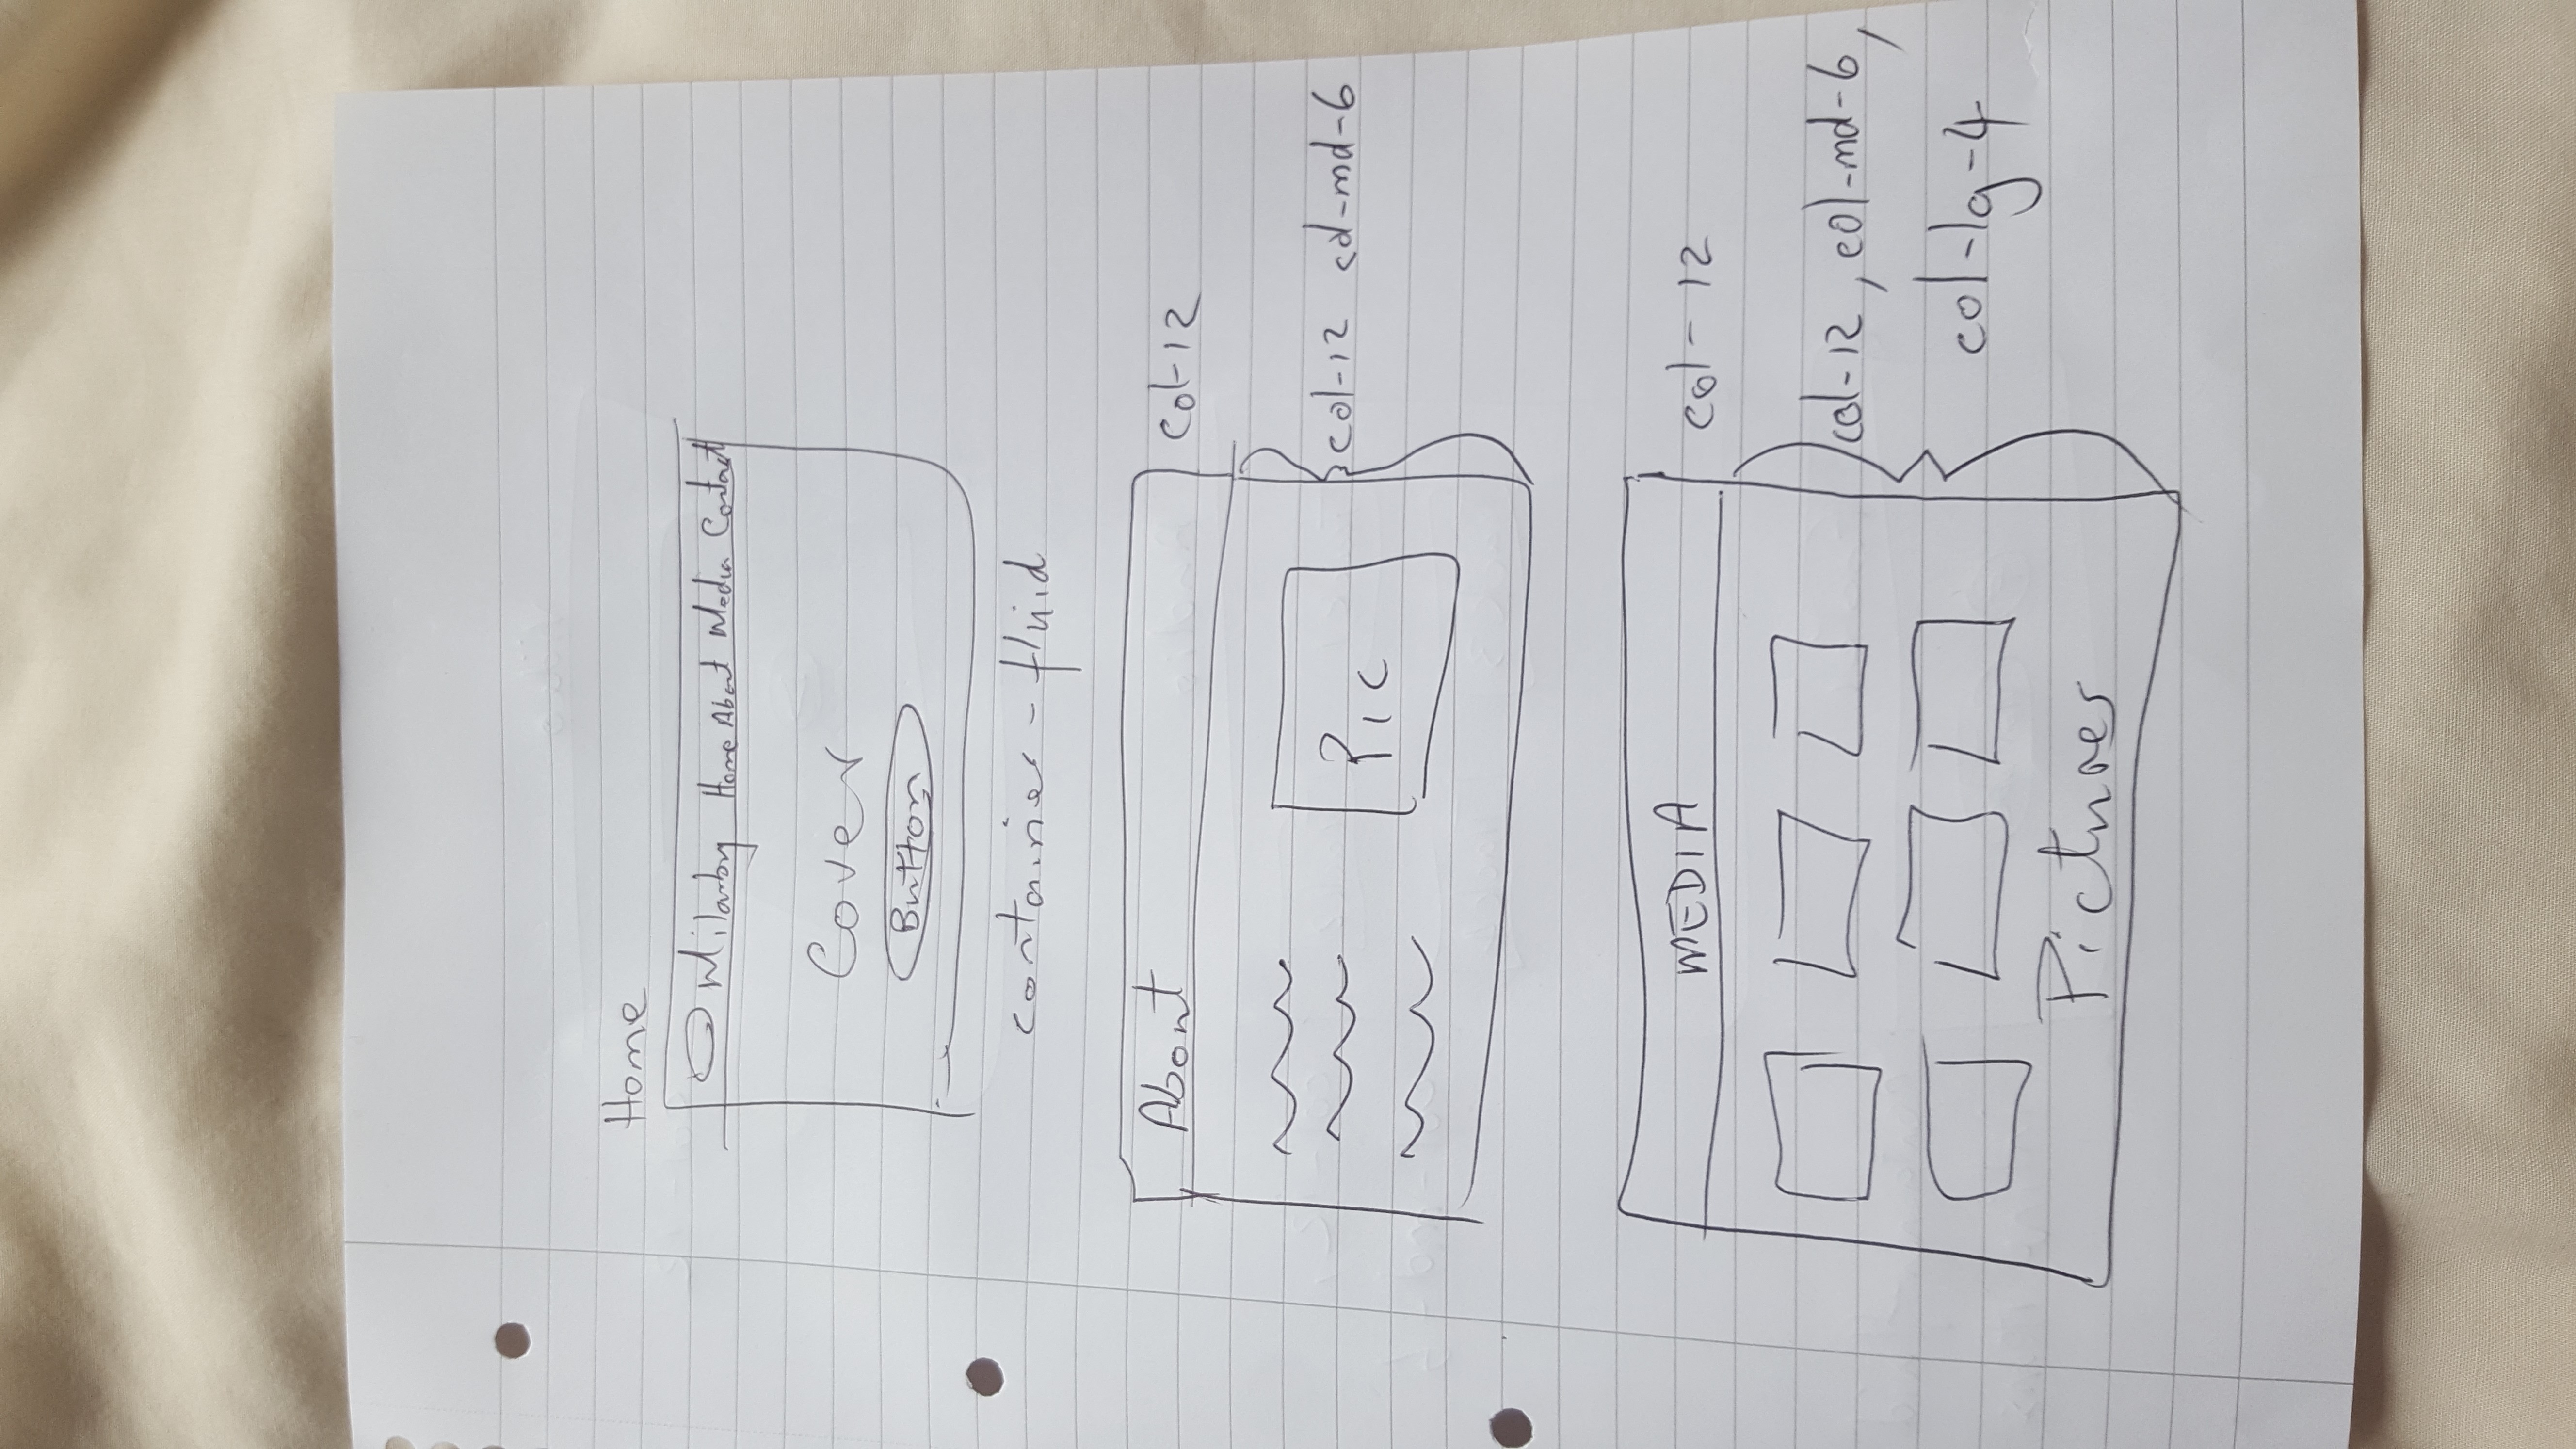 Home
Milanboy Home About Media Contact
Cover
Button
container - fluid
About
col-12
Pic
col-12 col-md-6
MEDIA
col-12
col-12, col-md-6,
col-lg-4
Pictures